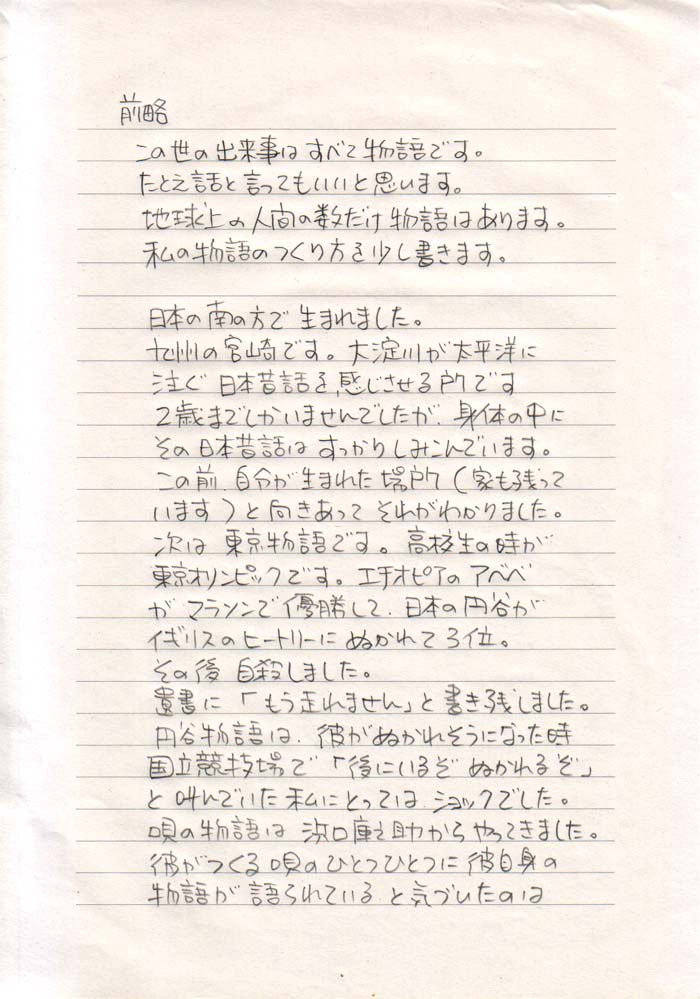 前略
この世の出来事はすべて物語です。
たとえ話と言ってもいいと思います。
地球上の人間の数だけ物語はあります。
私の物語のつくり方を少し書きます。
日本の南の方で生まれました。
九州の宮崎です。大淀川が太平洋に
注ぐ日本昔話を感じさせる所です
2歳までしかいませんでしたが、身体の中に
その日本昔話はすっかりしみこんでいます。
この前、自分が生まれた場所(家も残って
います)と向きあってそれがわかりました。
次は東京物語です。高校生の時が
東京オリンピックです。エチオピアのアベベ
がマラソンで優勝して、日本の円谷が
イギリスのヒートリーにぬかれて3位。
その後自殺しました。
遺書に「もう走れません」と書き残しました。
円谷物語は、彼がぬかれそうになった時
国立競技場で「後にいるぞぬかれるぞ」
と叫んでいた私にとってはショックでした。
唄の物語は浜口庫之助からやってきました。
彼がつくる唄のひとつひとつに彼自身の
物語が語られていると気づいたのは